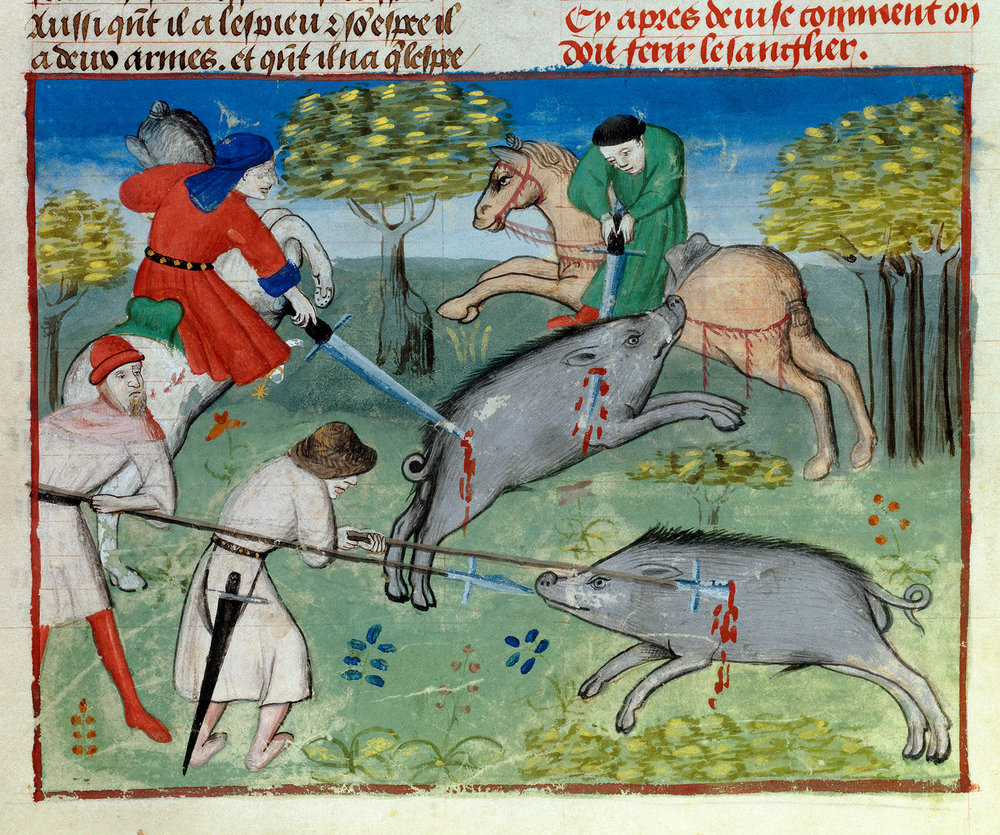 Aussi qnt il a lespieu ⁊ so espee il
a deux armes. et qnt il na q lespee
Cy apres deuise comment on
doit ferir le sanglier.